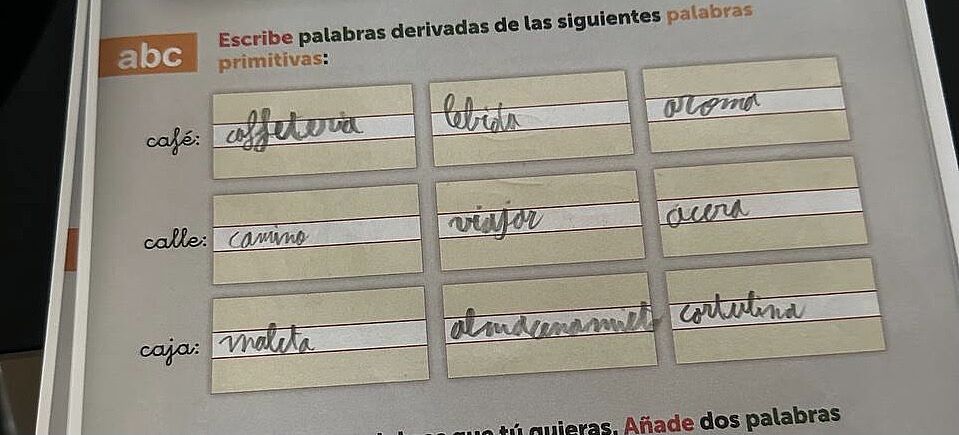 abc
Escribe palabras derivadas de las siguientes palabras
primitivas:
café: caffeteria bebida aroma
calle: camino viajar acera
caja: maleta almacenamiet cartulina
que tú quieras. Añade dos palabras